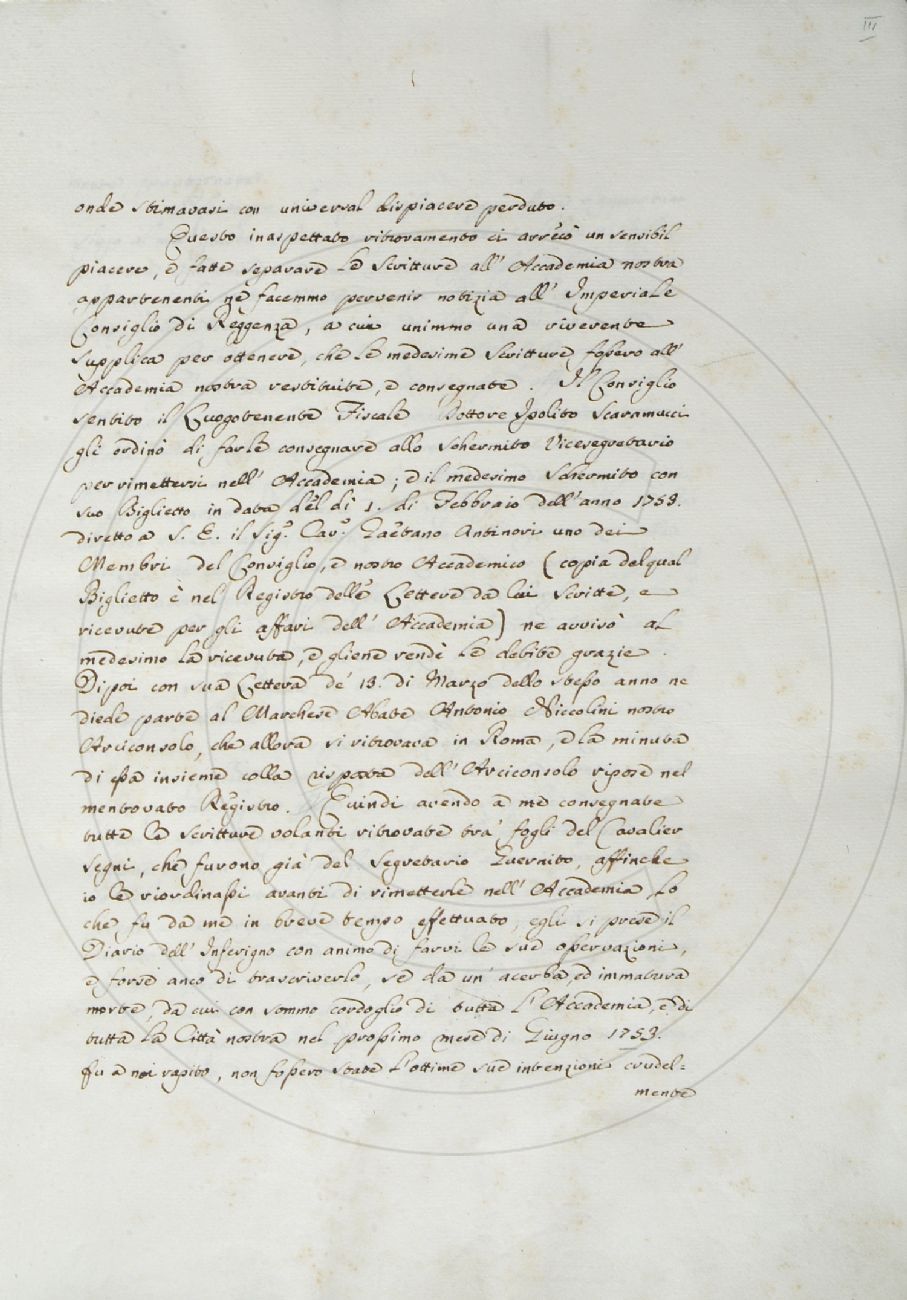 III
onde stimavasi con universal dispiacere perduto.
Questo inaspettato ritrovamento ci arrecò un sensibil
piacere, e fatte separare le scritture all' Accademia nostra
appartenenti ne facemmo pervenir notizia all' Imperiale
Consiglio di Reggenza, a cui unimmo una riverente
supplica per ottenere, che le medesime scritture fossero all'
Accademia nostra restituite, e consegnate. Il Consiglio
sentito il Luogotenente Fiscale Dottore Ipolito Scaramucci
gli ordinò di farle consegnare allo schermito Vicesegretario
per rimettersi nell' Accademia; e il medesimo Schermito con
suo Biglietto in data del dì 1. di Febbraio dell' anno 1753.
diretto a S. E. il Sig.r Cav.r Gaetano Antinori uno dei
Membri del Consiglio, e nostro Accademico (copia del qual
Biglietto è nel Registro delle Lettere da lui scritte, e
ricevute per gli affari dell' Accademia) ne avvisò al
medesimo la ricevuta, e gliene rendè le debite grazie.
Dipoi con sua Lettera de' 13. di Marzo dello stesso anno ne
diede parte al Marchese Abate Antonio Niccolini nostro
Arciconsolo, che allora si ritrovava in Roma, e la minuta
di essa insieme colla risposta dell' Arciconsolo ripose nel
mentovato Registro. Quindi avendo a me consegnate
tutte le scritture volanti ritrovate tra' fogli del Cavalier
Segni, che furono già del Segretario Guernito, affinche
io le riordinassi avanti di rimetterle nell' Accademia lo
che fu da me in breve tempo effettuato, egli si prese il
Diario dell' Inferigno con animo di farvi le sue osservazioni,
e forse anco di trascriverlo, se da un' acerba, ed immatura
morte, da cui con sommo cordoglio di tutta l' Accademia, e di
tutta la Città nostra nel prossimo mese di Giugno 1753.
fu a noi rapito, non fossero state l'ottime sue intenzioni crudel=
mente